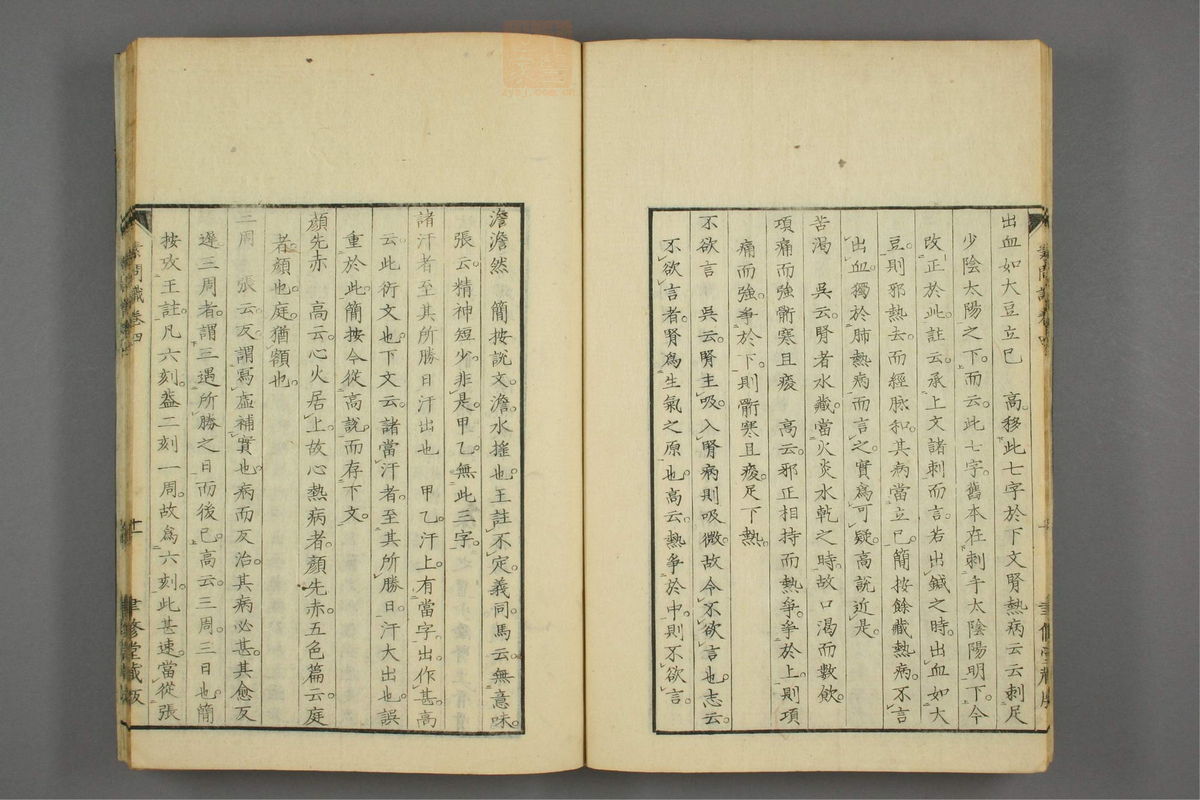 出血如大豆立巳　高移此七字於下文腎熱病云云刺足
少陰太陽之下。而云。此七字。舊本在刺手太陰陽明下。今
改正於此。註云。承上文諸刺而言。若出鍼之時。出血如大
豆。則邪熱去。而經脉和。其病當立巳。簡按餘藏熱病。不言
出血。獨於肺熱病而言之。實爲可疑。高說近是。
苦渴　吳云。腎者水藏。當火炎水乾之時。故口渴而數飲。
項痛而強䯒寒且痠　高云。邪正相持而熱爭。爭於上。則項
痛而強。爭於下。則䯒寒且痠。足下熱。
不欲言　吳云。腎主吸。入腎病則吸微。故令不欲言也。志云。
不欲言者。腎爲生氣之原也。高云。熱爭於中。則不欲言。
澹澹然　簡按說文。澹。水搖也。王註。不定。義同。馬云。無意味。
張云。精神短少。非是。甲乙。無此三字。
諸汗者至其所勝日汗出也　甲乙。汗上。有當字。出。作甚。高
云。此衍文也。下文云。諸當汗者。至其所勝日。汗大出也。誤
重於此。簡按今從高說。而存下文。
顔先赤　高云。心火居上。故心熱病者。顔先赤。五色篇云。庭
者。顔也。庭。猶額也。
三周　張云。反。謂寫虛補實也。病而反治。其病必甚。其愈反
遲。三周者。謂三遇所勝之日而後巳。高云。三周。三日也。簡
按攷王註。凡六刻。葢二刻一周。故爲六刻。此甚速。當從張
素問識卷四
聿修堂藏版